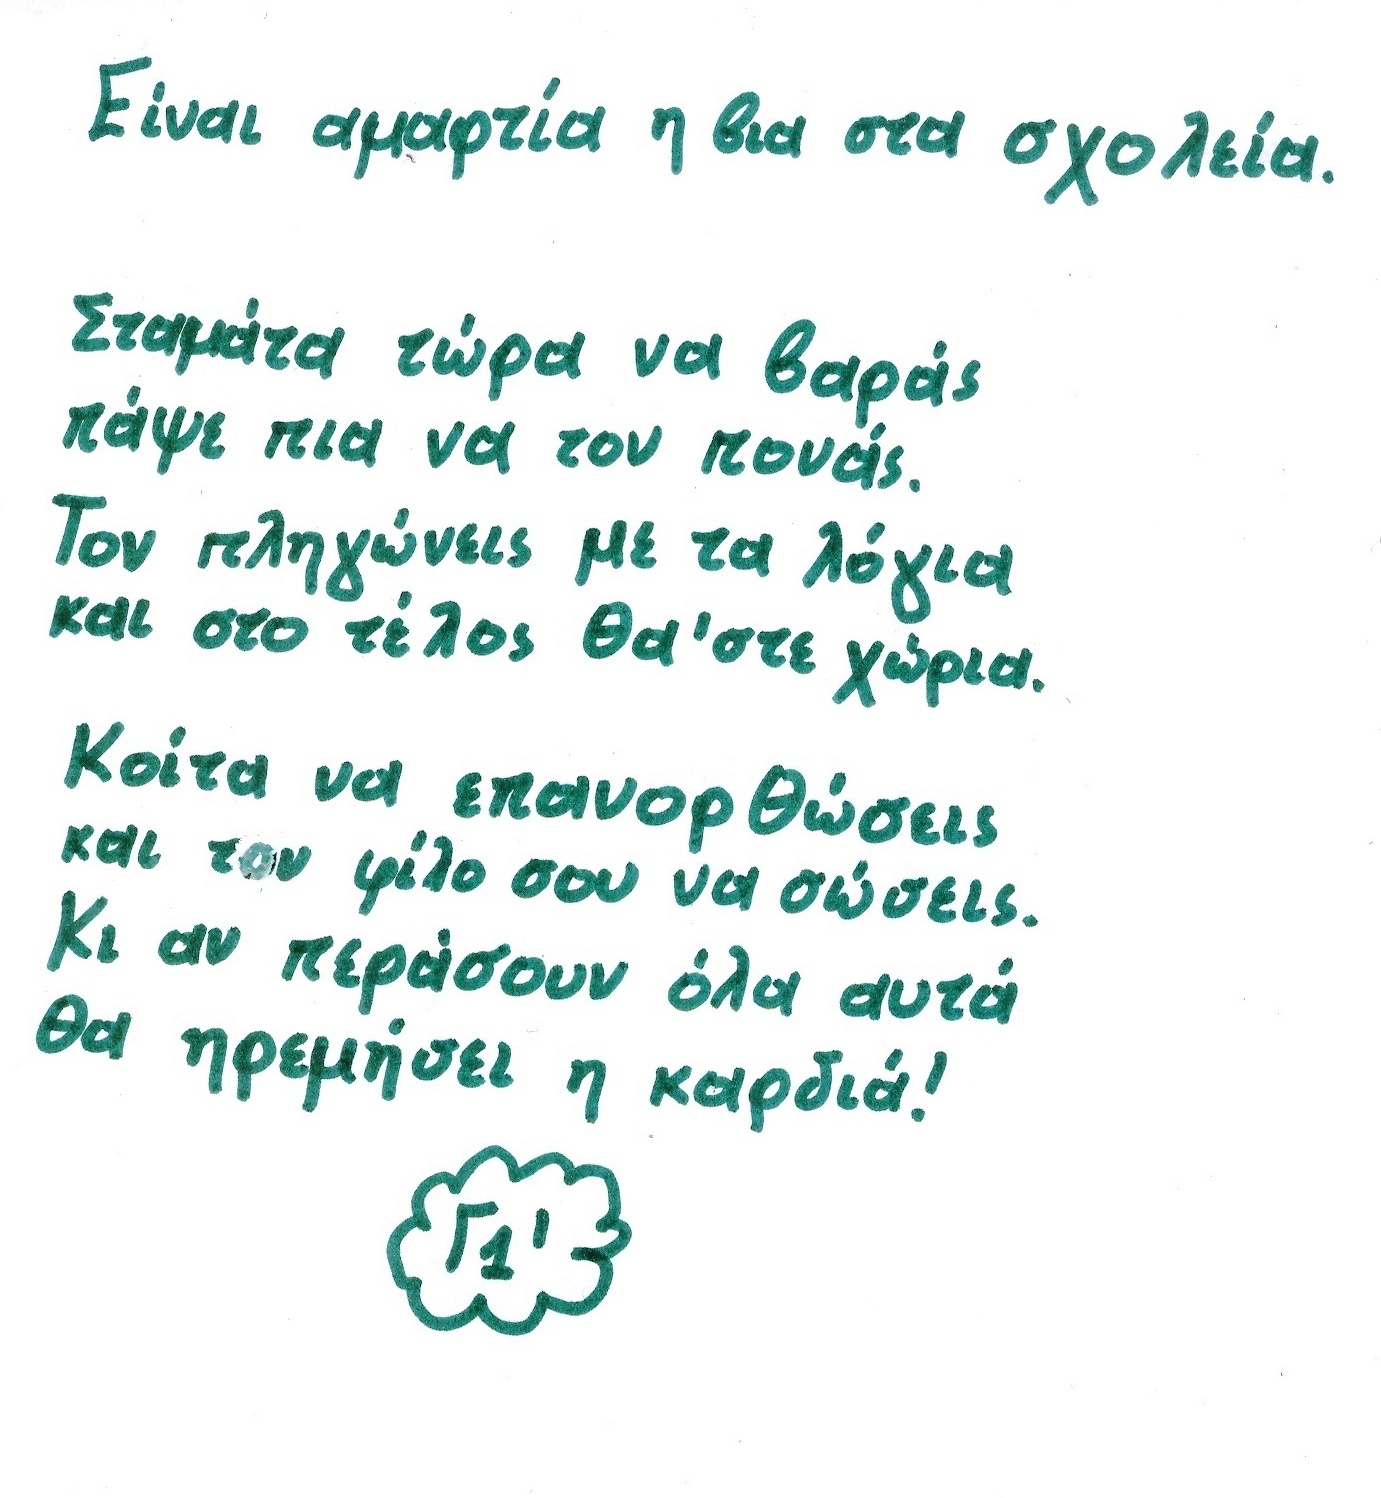 Είναι αμαρτία η βια στα σχολεία.
Σταμάτα τώρα να βαράς
πάψε πια να τον πονάς.
Τον πληγώνεις με τα λόγια
και στο τέλος θα'στε χώρια.
Κοίτα να επανορθώσεις
και τον φίλο σου να σώσεις.
Κι αν περάσουν όλα αυτά
θα ηρεμήσει η καρδιά!
Γ1'